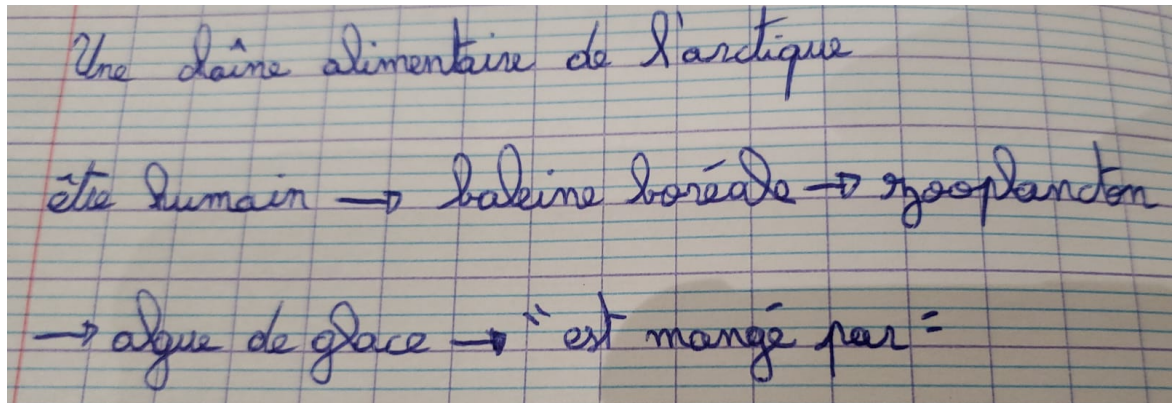 Une chaîne alimentaire de l'arctique
être humain → baleine boréale → zooplancton
→ algue de glace → " est mangé par "